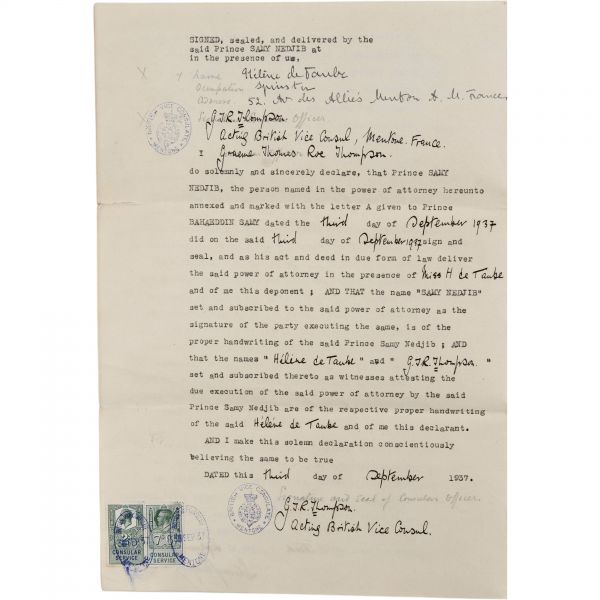 SIGNED, sealed, and delivered by the
said Prince SAMY NEDJIB at
in the presence of us,
X + Name Hélène de Taube
Occupation Spinster
Address. 52. Av des Alliés Menton A. M. France
G.T.R. Thompson. Officer.
Acting British Vice Consul, Mentone. France.
I Graeme Thomas Roe Thompson.
do solemnly and sincerely declare, that Prince SAMY
NEDJIB, the person named in the power of attorney hereunto
annexed and marked with the letter A given to Prince
BAHAEDDIN SAMY dated the third day of September 1937
did on the said third day of September 1937 sign and
seal, and as his act and deed in due form of law deliver
the said power of attorney in the presence of Miss H de Taube
and of me this deponent ; AND THAT the name "SAMY NEDJIB"
set and subscribed to the said power of attorney as the
signature of the party executing the same, is of the
proper handwriting of the said Prince Samy Nedjib ; AND
that the names "Hélène de Taube" and "G.T.R. Thompson. "
set and subscribed thereto as witnesses attesting the
due execution of the said power of attorney by the said
Prince Samy Nedjib are of the respective proper handwriting
of the said Hélène de Taube and of me this declarant.
AND I make this solemn declaration conscientiously
believing the same to be true
DATED this third day of September 1937.
Signature and seal of Consular Officer.
G.T.R. Thompson.
Acting British Vice Consul.
BRITISH VICE CONSULATE
MENTONE
BRITISH VICE CONSULATE
MENTONE
CONSULAR
SERVICE
CONSULAR
SERVICE
SEP. 37
MENTONE